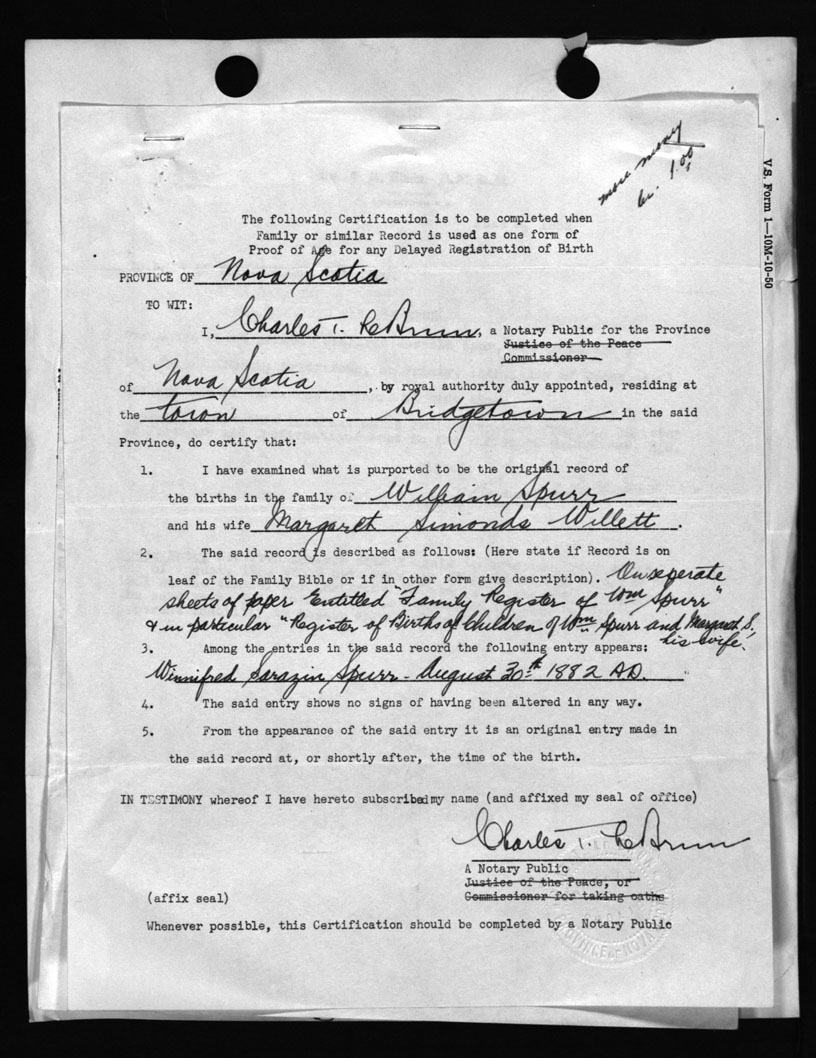 more money
br. 1.00
V.S. Form 1—10M-10-50
The following Certification is to be completed when
Family or similar Record is used as one form of
Proof of Age for any Delayed Registration of Birth
PROVINCE OF Nova Scotia
TO WIT:
I, Charles T. LeBrun, a Notary Public for the Province
Justice of the Peace
Commissioner
of Nova Scotia, by royal authority duly appointed, residing at
the town of Bridgetown in the said
Province, do certify that:
1. I have examined what is purported to be the original record of
the births in the family of William Spurr
and his wife Margaret Simonds Willett.
2. The said record is described as follows: (Here state if Record is on
leaf of the Family Bible or if in other form give description). On seperate
sheets of paper Entitled "Family Register of Wm Spurr"
& in particular "Register of Births of Children of Wm Spurr and Margaret S.
his wife."
3. Among the entries in the said record the following entry appears:
Winnifred Sarazin Spurr - August 30th 1882 AD.
4. The said entry shows no signs of having been altered in any way.
5. From the appearance of the said entry it is an original entry made in
the said record at, or shortly after, the time of the birth.
IN TESTIMONY whereof I have hereto subscribed my name (and affixed my seal of office)
Charles T. LeBrun
A Notary Public
Justice of the Peace, or
Commissioner for taking oaths
(affix seal)
Whenever possible, this Certification should be completed by a Notary Public
PROVINCE OF NOVA